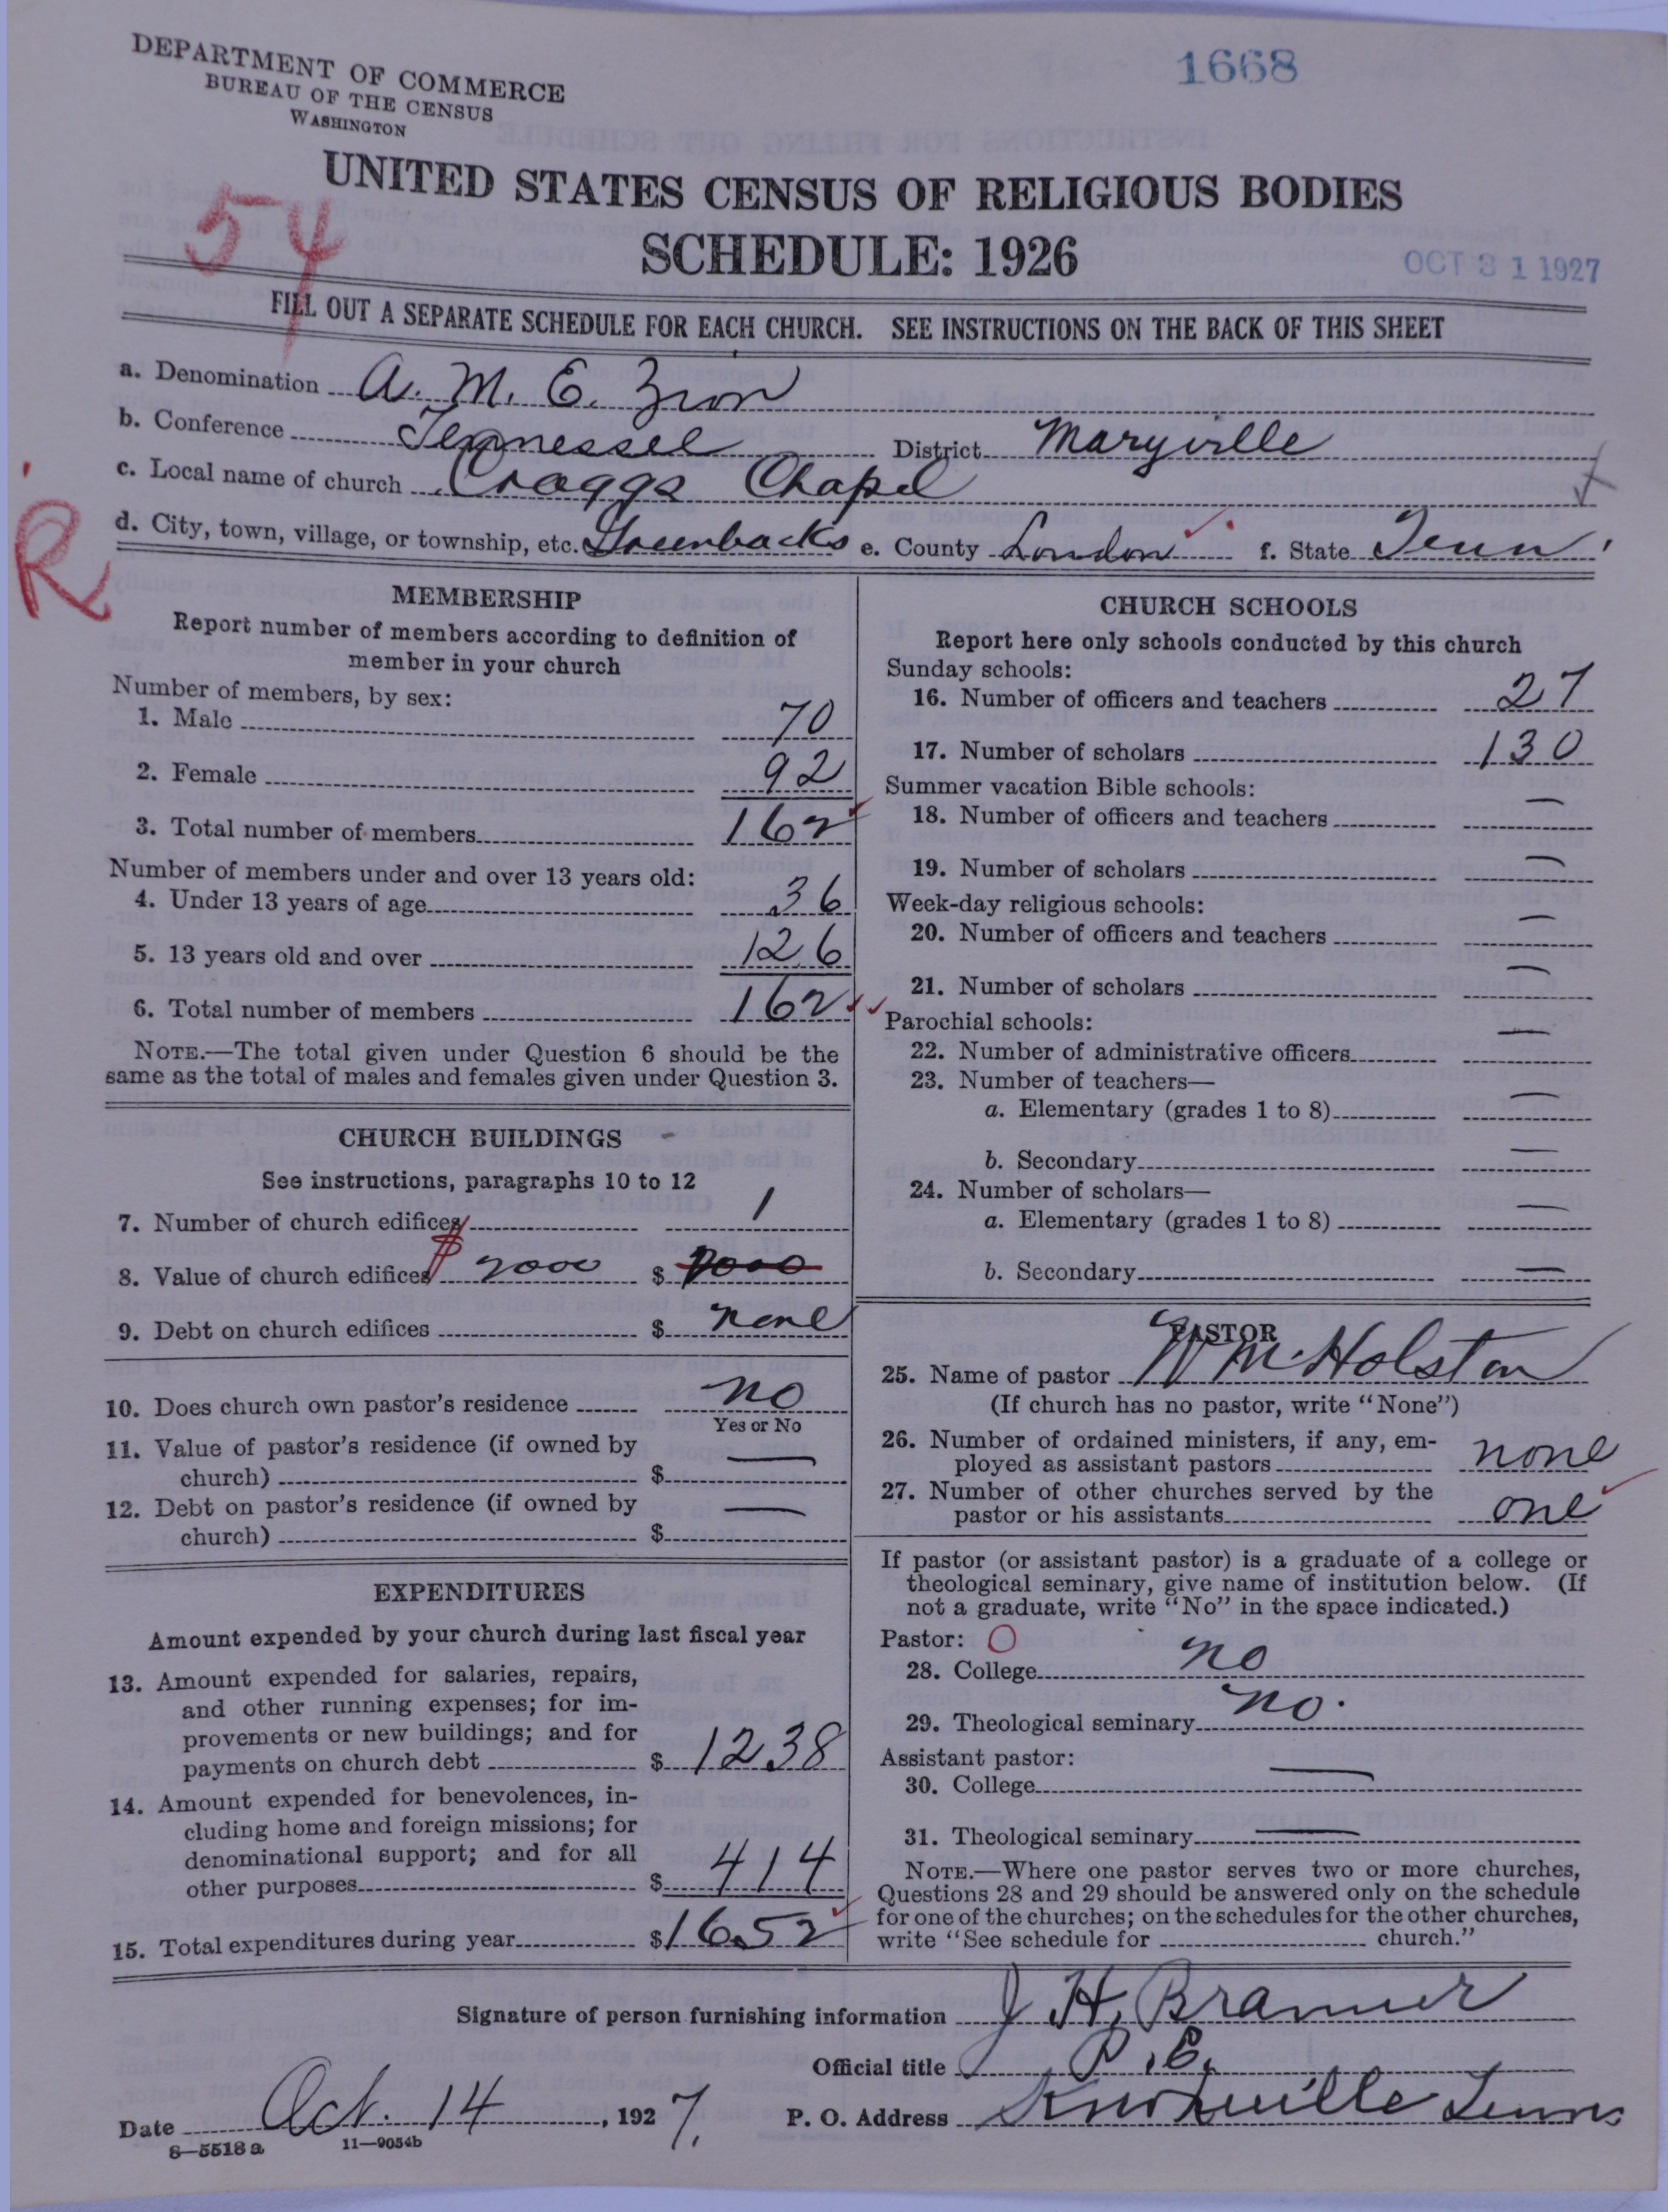 DEPARTMENT OF COMMERCE
BUREAU OF THE CENSUS
WASHINGTON
1668
UNITED STATES CENSUS OF RELIGIOUS BODIES
54
SCHEDULE: 1926
OCT 31 1927
FILL OUT A SEPARATE SCHEDULE FOR EACH CHURCH. SEE INSTRUCTIONS ON THE BACK OF THIS SHEET
a. Denomination A. M. E. Zion
b. Conference Tennessee District Maryville
c. Local name of church Craggs Chapel
d. City, town, village, or township, etc. Greenbacks e. County London f. State Tenn
R
MEMBERSHIP
Report number of members according to definition of
member in your church
Number of members, by sex:
1. Male 70
2. Female 92
3. Total number of members 162
Number of members under and over 13 years old:
4. Under 13 years of age 36
5. 13 years old and over 126
6. Total number of members 162
NOTE.—The total given under Question 6 should be the
same as the total of males and females given under Question 3.
CHURCH BUILDINGS
See instructions, paragraphs 10 to 12
7. Number of church edifices 1
8. Value of church edifices $ 2000 $ 2000
9. Debt on church edifices $ none
10. Does church own pastor's residence no
Yes or No
11. Value of pastor's residence (if owned by
church) $ —
12. Debt on pastor's residence (if owned by
church) $ —
EXPENDITURES
Amount expended by your church during last fiscal year
13. Amount expended for salaries, repairs,
and other running expenses; for im-
provements or new buildings; and for
payments on church debt $ 1238
14. Amount expended for benevolences, in-
cluding home and foreign missions; for
denominational support; and for all
other purposes $ 414
15. Total expenditures during year $ 1652
CHURCH SCHOOLS
Report here only schools conducted by this church
Sunday schools:
16. Number of officers and teachers 27
17. Number of scholars 130
Summer vacation Bible schools:
18. Number of officers and teachers —
19. Number of scholars —
Week-day religious schools:
20. Number of officers and teachers —
21. Number of scholars —
Parochial schools:
22. Number of administrative officers —
23. Number of teachers—
a. Elementary (grades 1 to 8) —
b. Secondary —
24. Number of scholars—
a. Elementary (grades 1 to 8) —
b. Secondary —
PASTOR
25. Name of pastor W M Holston
(If church has no pastor, write "None")
26. Number of ordained ministers, if any, em-
ployed as assistant pastors none
27. Number of other churches served by the
pastor or his assistants one
If pastor (or assistant pastor) is a graduate of a college or
theological seminary, give name of institution below. (If
not a graduate, write "No" in the space indicated.)
Pastor: O
28. College no
29. Theological seminary no.
Assistant pastor:
30. College —
31. Theological seminary —
NOTE.—Where one pastor serves two or more churches,
Questions 28 and 29 should be answered only on the schedule
for one of the churches; on the schedules for the other churches,
write "See schedule for church."
Signature of person furnishing information J. H. Branner
Official title P. E.
Date Oct. 14, 1927. P. O. Address Knoxville Tenn
8—5518 a 11—9054b